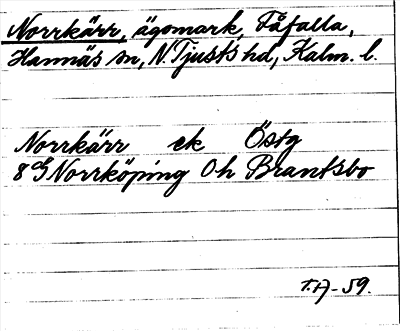 Norrkärr, ägomark, Fåfalla,
Hannäs sn, N. Tjusts hd, Kalm. l.
Norrkärr ek Östg
8G Norrköping 0h Brantsbo
T.A-59.